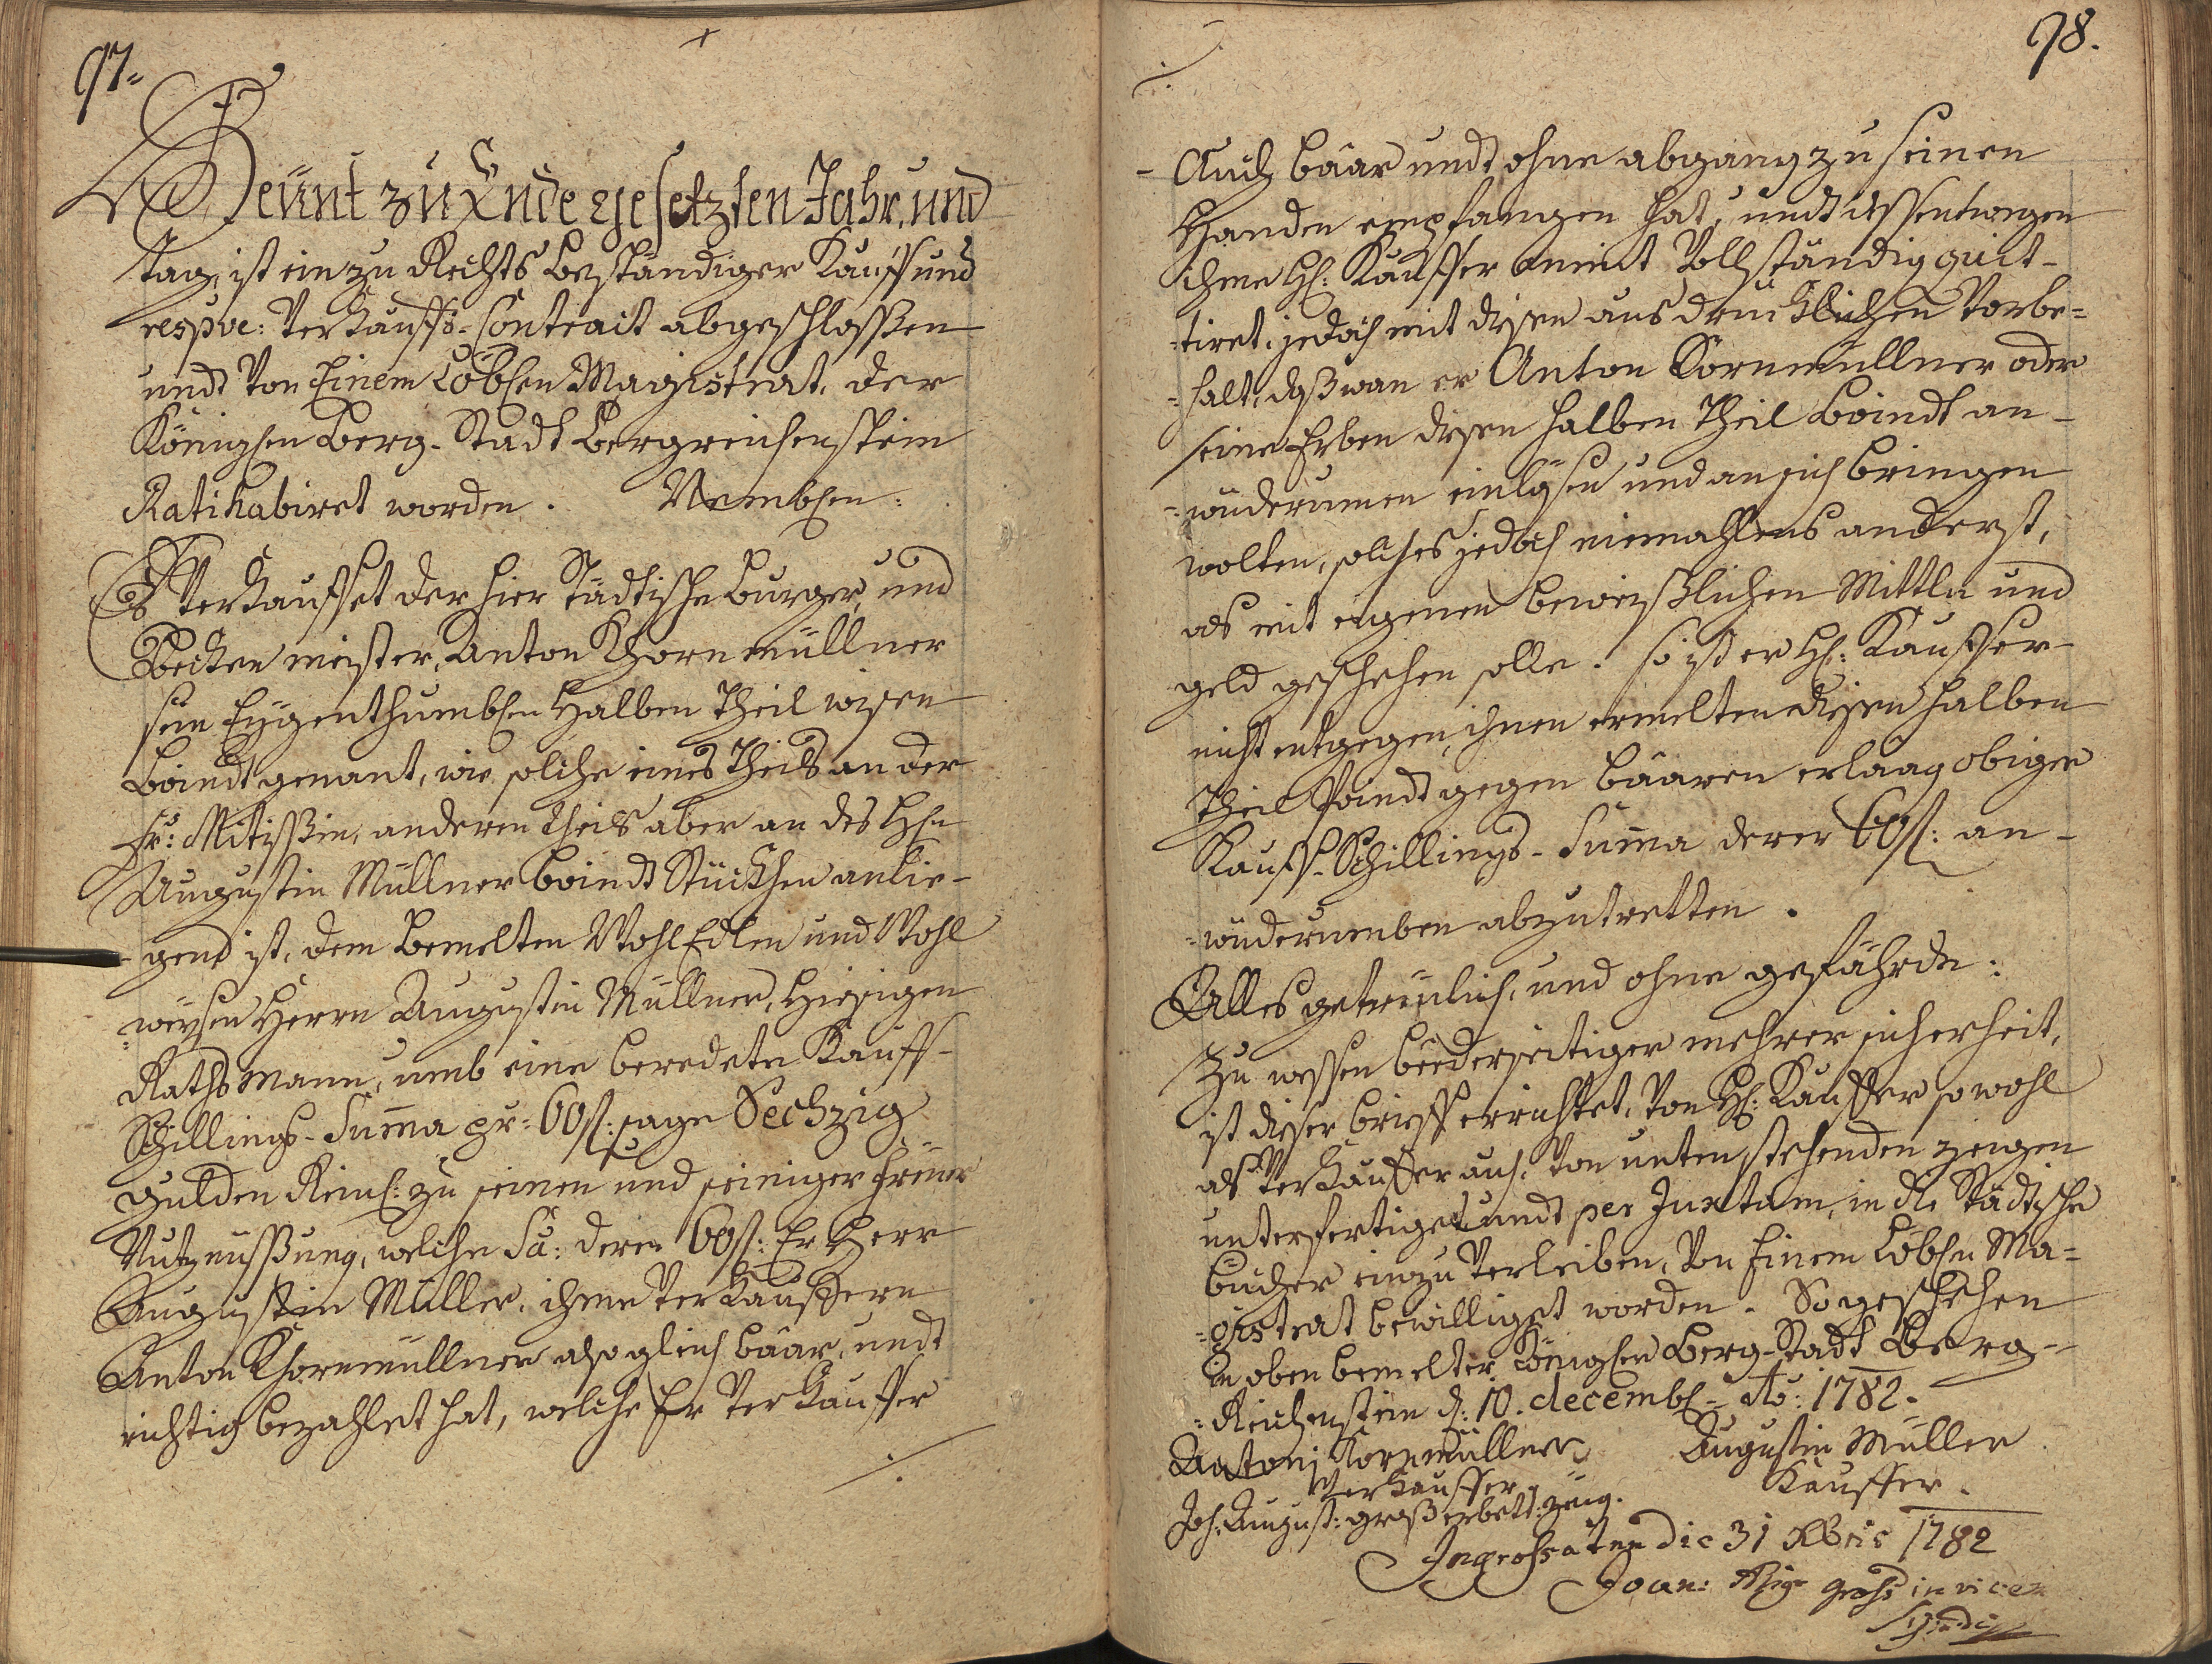 97.
Heünt zu Ende gesetzten Jahr, und
tag, ist ein zu Rechts beständiger Kauff und
respve: Verkauffs-Contract abgeschlossen
undt Von Einem Löbhen Magistrat, der
Könighen Berg-Stadt Bergreichenstein
Ratihabiret worden. Nembhen:
Es Verkauffet der hier städtische burger, und
Becken meister, Anton Khornmüllner
sein Eÿgenthumbhen Halben Theil wisen
Boindt genant, wie solche eines Theils an der
Fr: Mitißin, anderen theils aber an des Hhn
Augustin Müllner boindt Stückhen anlie-
gend ist, dem bemelten WohlEdlen und Wohl
weysen Herrn Augustin Müllner, hiesigen
Raths Mann, umb eine beredete Kauff-
Schillings-Summa pr: 60 f: sage Sechzig
gulden Reinh: zu seinen und seiniger freüer
Nutznüssung, welche Sa: derer 60 f: Er Herr
Augustin Müller, ihme Verkauffern
Anton Khornmüllner also gleich baar, undt
richtig bezahlet hat, welche Er Verkauffer
./.
98.
./.
Auch baar undt ohne abgang zu seinen
Handen empfangen hat, undt dessentwegen
ihme Hh: Kauffer anmit Vollständig quit-
tiret, jedoch mit disen ausdrücklichen Vorbe=
=halt, daß wan er Anton Kornmüllner oder
seine Erben disen halben Theil Boindt an-
=wüderumen einlösen und an sich bringen
wolten, solches jedoch niemahlens anderst,
als mit eigenen beweißlichen Mittln und
geld geschehen solle. so ist er Hh: Kauffer
nicht entgegen, ihnen ermelten disen halben
Theil Poindt gegen baaren erlaag obiger
Kauff-Schillings-Summa derer 60 f: an-
=wüderumben abzutretten.
Alles getreülich, und ohne gefährde:
Zu wessen beederseitiger mehrer sicherheit,
ist diser brieff errichtet, von Hh: Kauffer sowohl
als Verkauffer auch von unten stehenden zeugen
unterfertiget undt per Juxtam, in die Städtische
bucher einzuverleiben, von Einem Löbhen Ma=
=gistrat bewilliget worden. So geschehen
in oben bemelter Könighen Berg-Stadt Berg-
=Reichenstein d: 10. decembh= Ao: 1782.
Antoni Kornmüllner Augustin Müller
Verkauffer. Kauffer.
Joh: August: groß erbett: zeug.
Ingrossatum die 31 Xbris 1782
Joan: Aug: Groß in vicem
Syndici